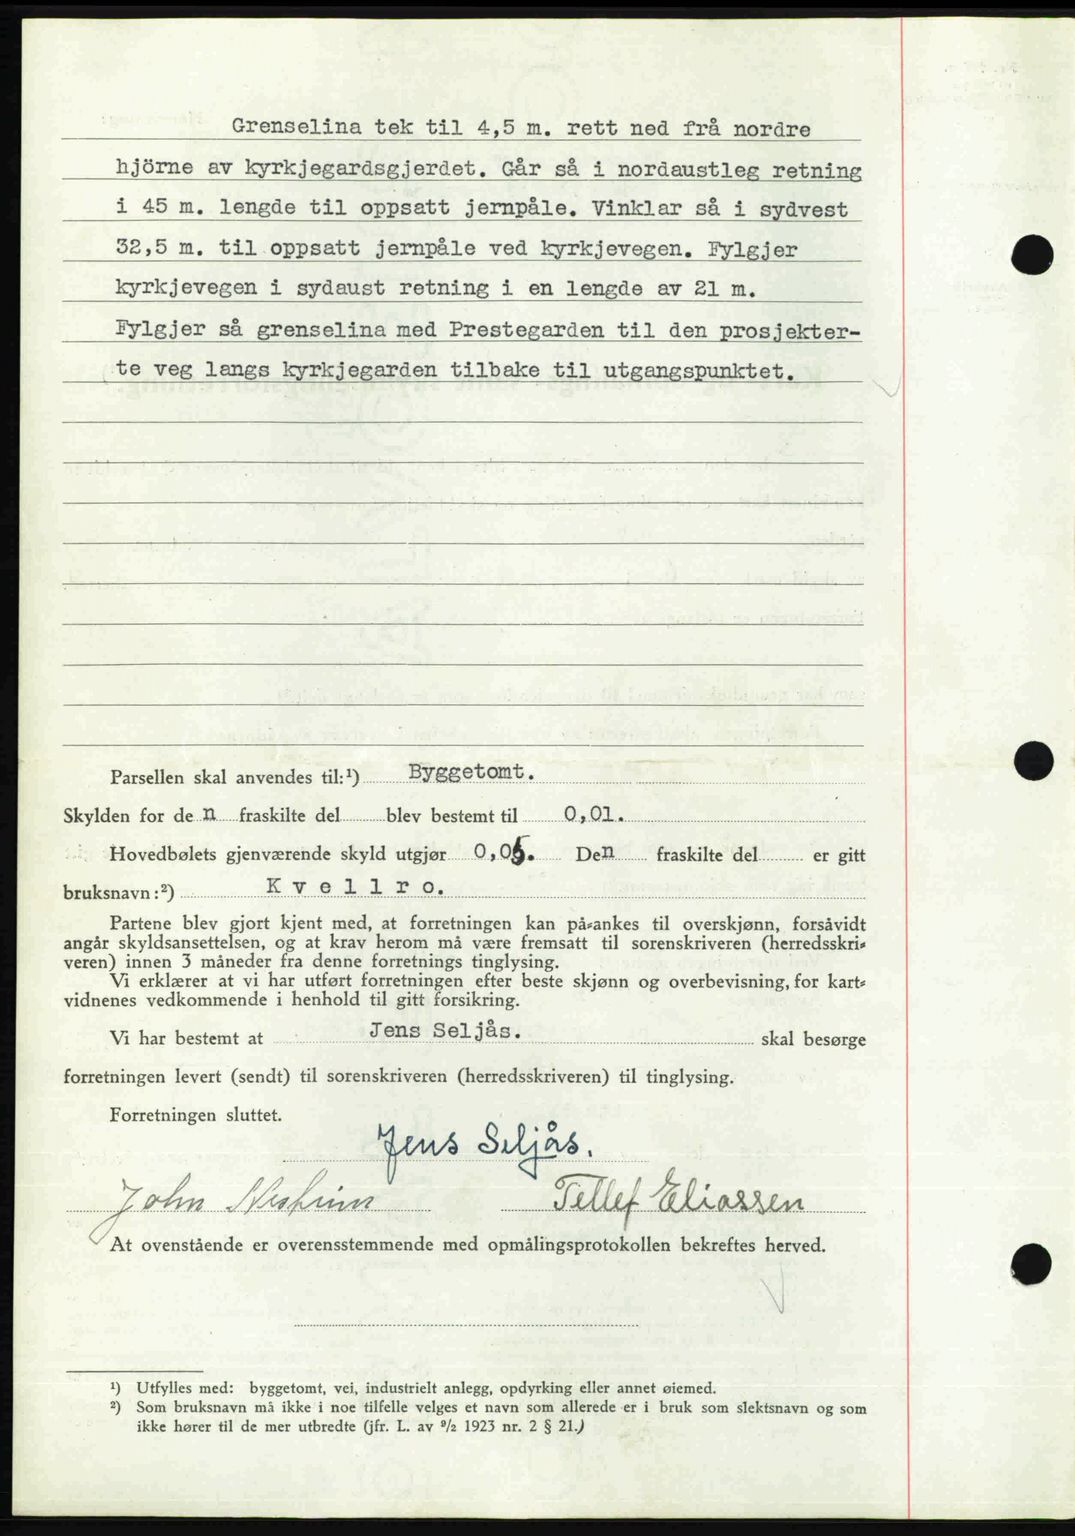 Grenselina tek til 4,5 m. rett ned frå nordre
hjörne av kyrkjegardsgjerdet. Går så i nordaustleg retning
i 45 m. lengde til oppsatt jernpåle. Vinklar så i sydvest
32,5 m. til oppsatt jernpåle ved kyrkjevegen. Fylgjer
kyrkjevegen i sydaust retning i en lengde av 21 m.
Fylgjer så grenselina med Prestegarden til den prosjekter-
te veg langs kyrkjegarden tilbake til utgangspunktet.
Parsellen skal anvendes til:¹) Byggetomt.
Skylden for de n fraskilte del blev bestemt til 0,01.
Hovedbølets gjenværende skyld utgjør 0,05. Den fraskilte del er gitt
bruksnavn:²) K v e l l r o.
Partene blev gjort kjent med, at forretningen kan på-ankes til overskjønn, forsåvidt
angår skyldsansettelsen, og at krav herom må være fremsatt til sorenskriveren (herredsskri-
veren) innen 3 måneder fra denne forretnings tinglysing.
Vi erklærer at vi har utført forretningen efter beste skjønn og overbevisning, for kart-
vidnenes vedkommende i henhold til gitt forsikring.
Vi har bestemt at Jens Seljås. skal besørge
forretningen levert (sendt) til sorenskriveren (herredsskriveren) til tinglysing.
Forretningen sluttet.
Jens Seljås.
John Tellef Eliassen
At ovenstående er overensstemmende med opmålingsprotokollen bekreftes herved.
¹) Utfylles med: byggetomt, vei, industrielt anlegg, opdyrking eller annet øiemed.
²) Som bruksnavn må ikke i noe tilfelle velges et navn som allerede er i bruk som slektsnavn og som
ikke hører til de mer utbredte (jfr. L. av ⁹/₂ 1923 nr. 2 § 21.)